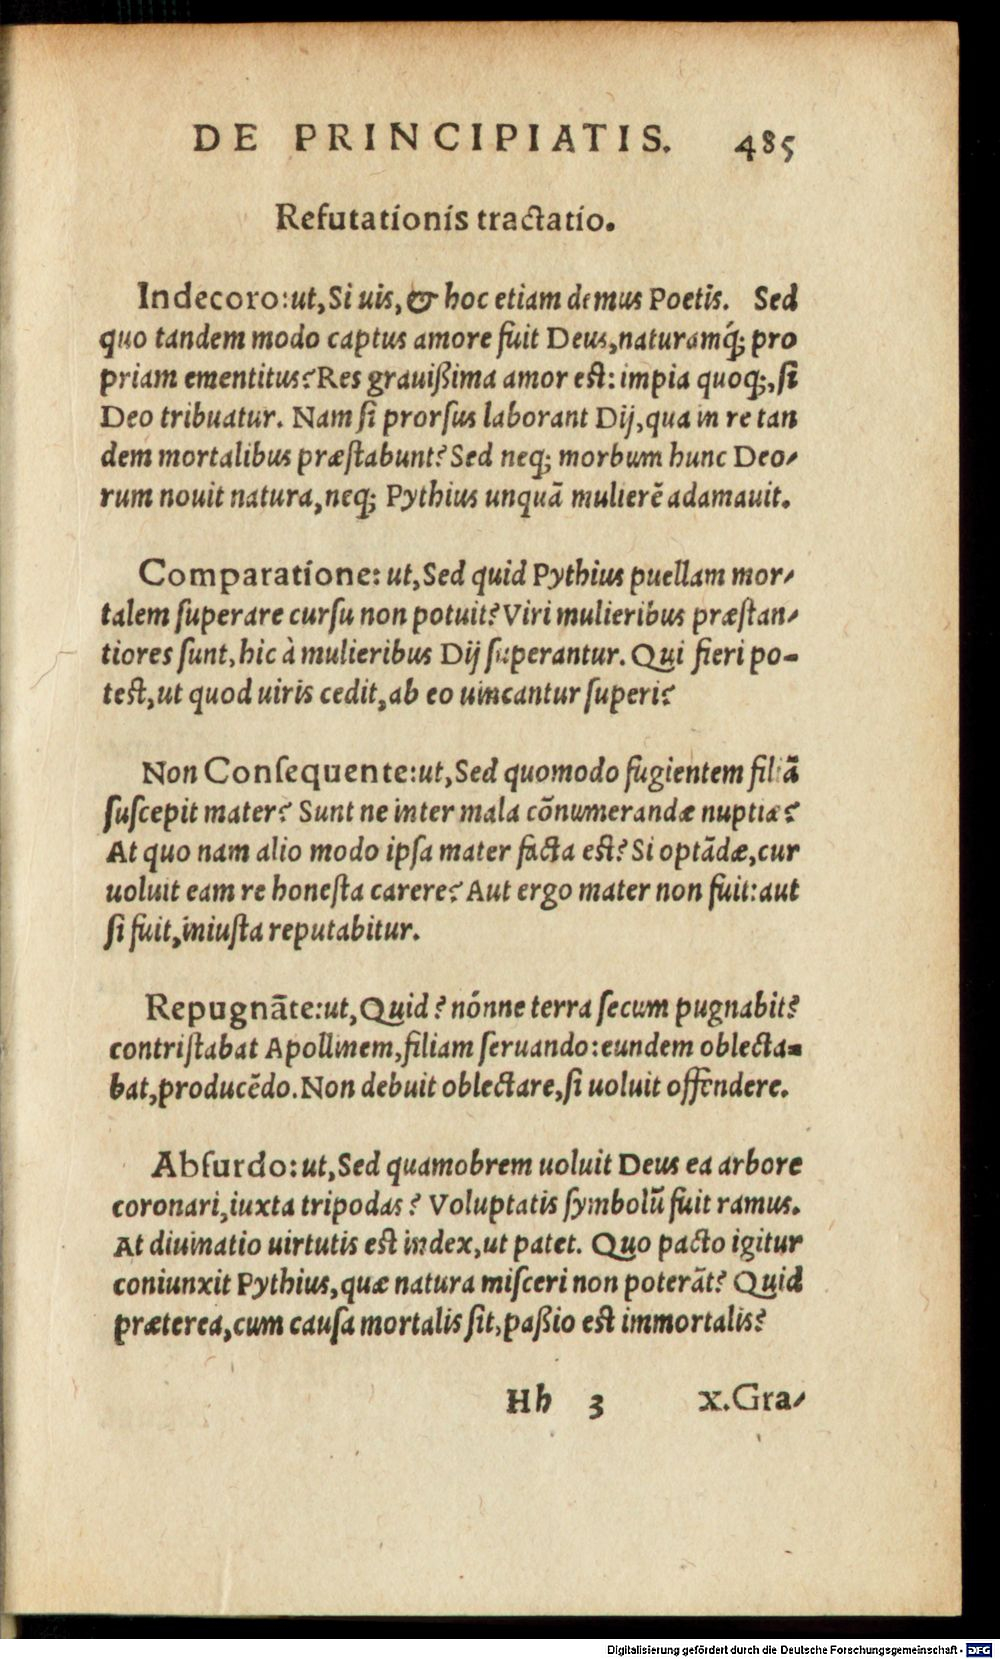 DE PRINCIPIATIS. 485
Refutationis tractatio.
Indecoro: ut, Si uis, & hoc etiam demus Poetis. Sed
quo tandem modo captus amore fuit Deus, naturamq́; pro
priam ementitus? Res grauißima amor est: impia quoq;, ſi
Deo tribuatur. Nam ſi prorſus laborant Dij, qua in re tan
dem mortalibus præſtabunt? Sed neq; morbum hunc Deo-
rum nouit natura, neq; Pythius unquā mulierē adamauit.
Comparatione: ut, Sed quid Pythius puellam mor-
talem ſuperare curſu non potuit? Viri mulieribus præſtan-
tiores ſunt, hic à mulieribus Dij ſuperantur. Qui fieri po-
test, ut quod uiris cedit, ab eo uincantur ſuperi?
Non Conſequente: ut, Sed quomodo fugientem filiā
ſuſcepit mater? Sunt ne inter mala cōnumerandæ nuptiæ?
At quo nam alio modo ipſa mater facta est? Si optādæ, cur
uoluit eam re honeſta carere? Aut ergo mater non fuit: aut
ſi fuit, iniuſta reputabitur.
Repugnāte: ut, Quid? nónne terra ſecum pugnabit?
contriſtabat Apollinem, filiam ſeruando: eundem oblecta-
bat, producēdo. Non debuit oblectare, ſi uoluit offendere.
Abſurdo: ut, Sed quamobrem uoluit Deus ea arbore
coronari, iuxta tripodas? Voluptatis ſymbolū fuit ramus.
At diuinatio uirtutis est index, ut patet. Quo pacto igitur
coniunxit Pythius, quæ natura miſceri non poterāt? Quid
præterea, cum cauſa mortalis ſit, paßio est immortalis?
Hh 3 x. Gra-
Digitalisierung gefördert durch die Deutsche Forschungsgemeinschaft - DFG